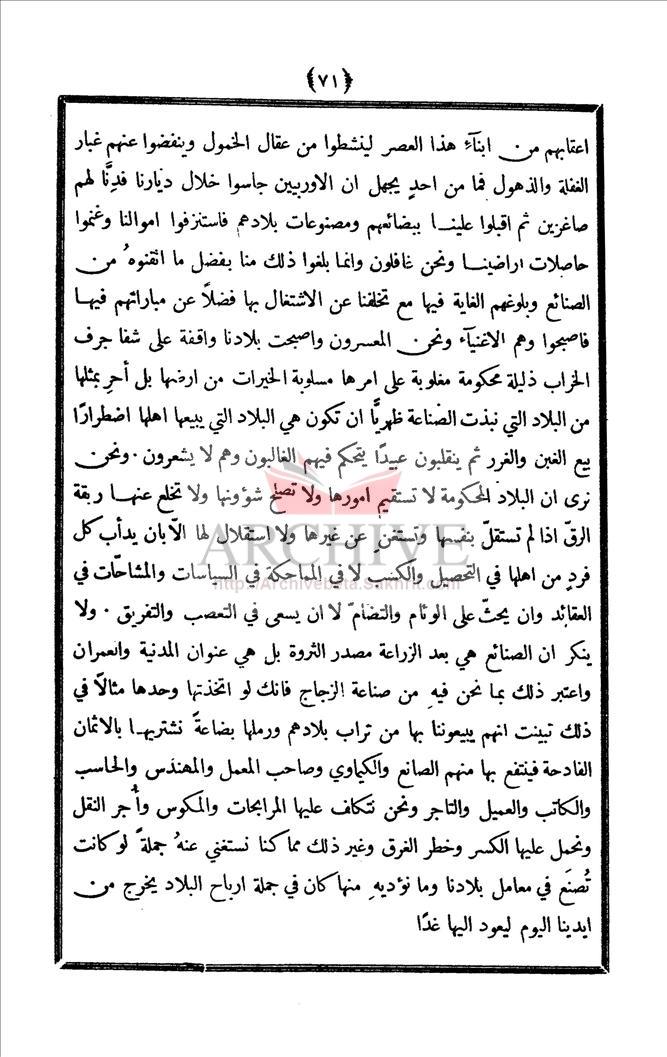 ﴿٧١﴾
اعقابهم من ابنآءِ هذا العصر لينشطوا من عقال الخمول وينفضوا عنهم غبار
الغفلة والذهول فما من احدٍ يجهل ان الاوربيين جاسوا خلال ديارنا فدِنَّا لهم
صاغرين ثم اقبلوا علينــا ببضائعهم ومصنوعات بلادهم فاستنزفوا اموالنا وغنموا
حاصلات اراضينــا ونحن غافلون وانما بلغوا ذلك منا بفضل ما اتقنوهُ من
الصنائع وبلوغهم الغاية فيها مع تخلفنا عن الاشتغال بها فضلاً عن مباراتهم فيهــا
فاصبحوا وهم الاغنيآء ونحن المعسرون واصبحت بلادنا واقفة على شفا جرف
الخراب ذليلة محكومة مغلوبة على امرها مسلوبة الخيرات من ارضها بل أحرِ بمثلها
من البلاد التي نبذت الصناعة ظهريًّا ان تكون هي البلاد التي يبيعها اهلها اضطرارًا
بيع الغبن والغرر ثم ينقلبون عبيدًا يتحكم فيهم الغالبون وهم لا يشعرون · ونحن
نرى ان البلاد المحكومة لا تستقيم امورها ولا تصلح شؤونها ولا تخلع عنهــا ربقة
الرقّ اذا لم تستقلّ بنفسها وتستغنِ عن غيرها ولا استقلال لها الّا بان يدأب كل
فردٍ من اهلها في التحصيل والكسب لا في المماحكة في السياسات والمشاحّات في
العقائد وان يحثّ على الوئام والتضامّ لا ان يسعى في التعصب والتفريق · ولا
ينكر ان الصنائع هي بعد الزراعة مصدر الثروة بل هي عنوان المدنية والعمران
واعتبر ذلك بما نحن فيهِ من صناعة الزجاج فانك لو اتخذتها وحدها مثالاً في
ذلك تبينت انهم يبيعوننا بها من تراب بلادهم ورملها بضاعةً نشتريهــا بالاثمان
الفادحة فينتفع بها منهم الصانع والكيماوي وصاحب المعمل والمهندس والحاسب
والكاتب والعميل والتاجر ونحن نتكلف عليها المرابحات والمكوس وأُجر النقل
ونحمل عليها الكسر وخطر الغرق وغير ذلك مما كنا نستغني عنهُ جملةً لو كانت
تُصنَع في معامل بلادنا وما نؤديهِ منها كان في جملة ارباح البلاد يخرج من
ايدينا اليوم ليعود اليها غدًا
ARCHIVE
http://Archivebeta.Sakhrit.com